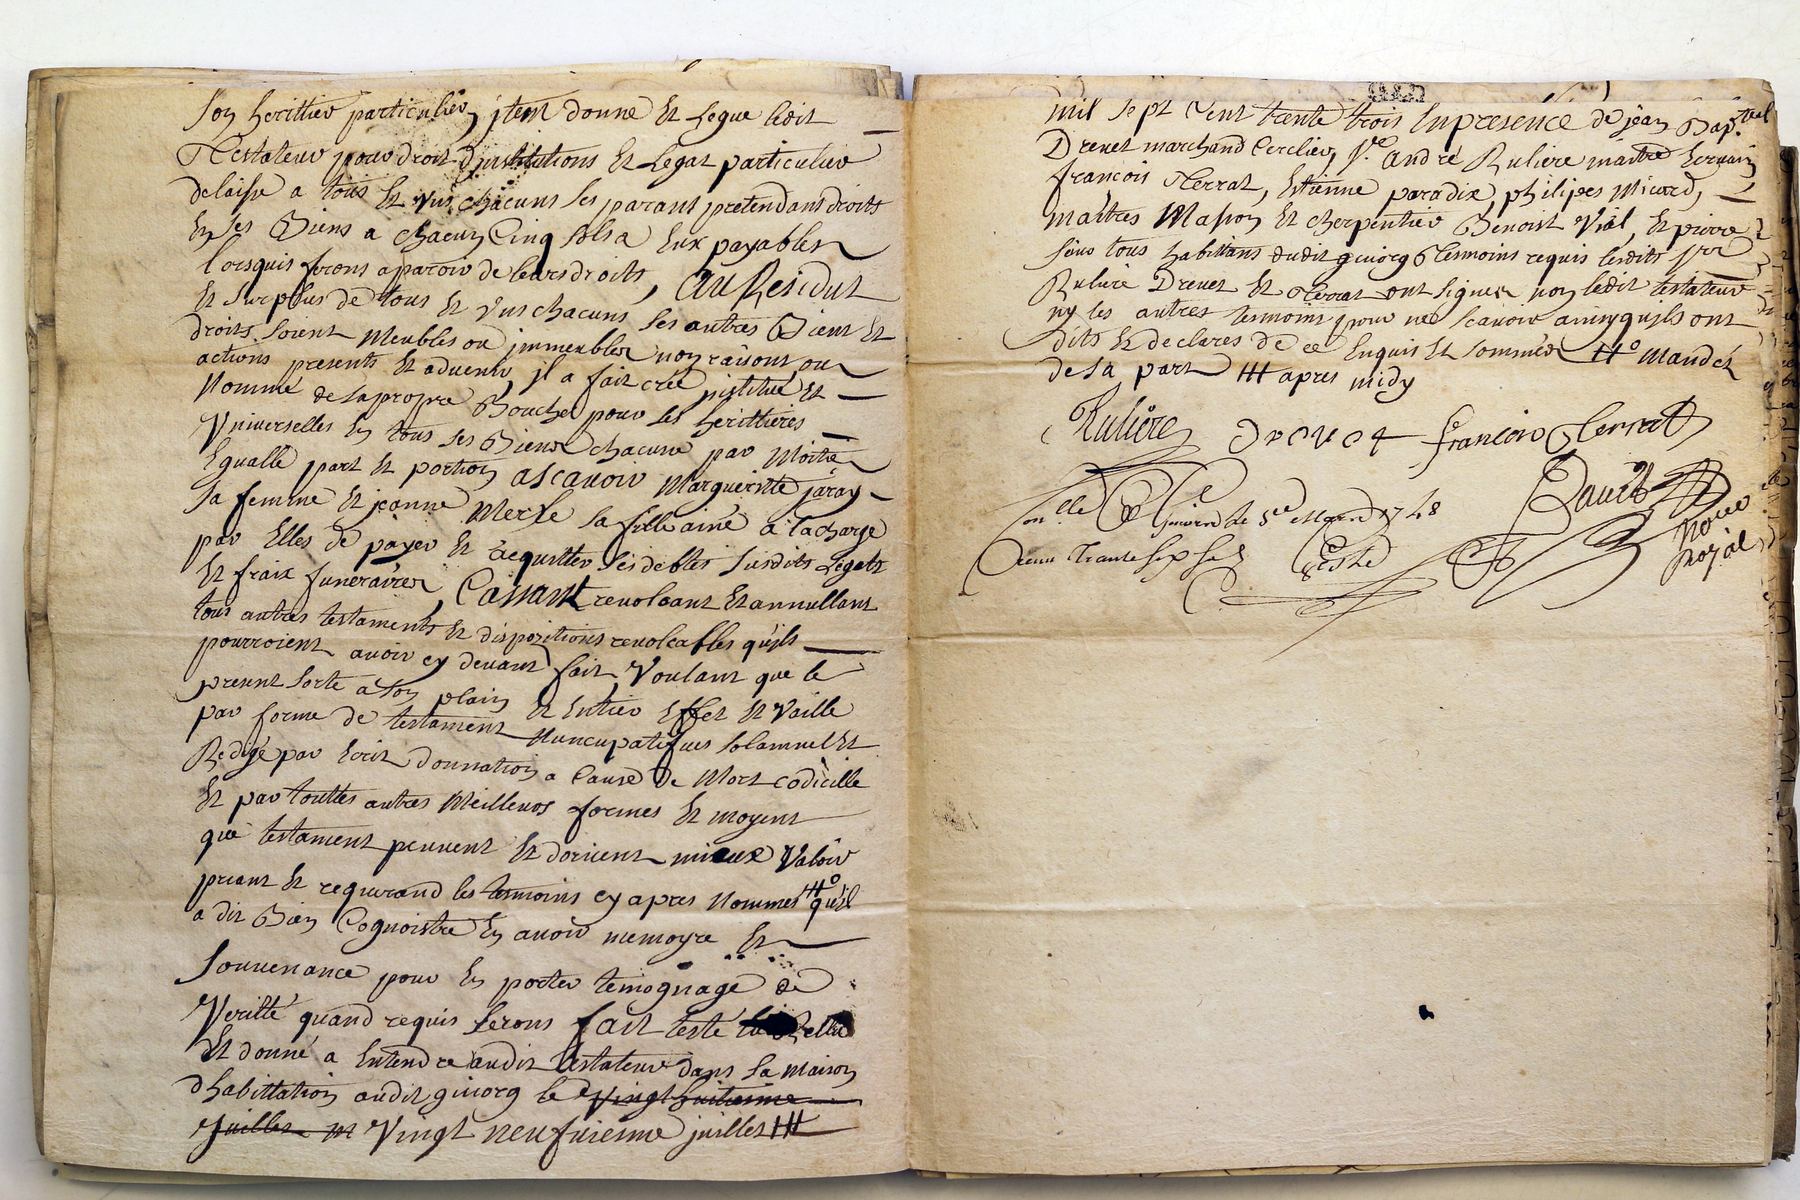 son herittier particulier, jtem donne et legue ledit
Testateur pour droit d'jnstitutions et Legat particulier
delaisse a tous et vns chacuns ses parans pretendans droits
en ses Biens a chacun Cinq sols a eux payables
lorsquis feront aparoir de leurs droits, Au Residut
et surplus de tous et vns chacuns ses autres Biens et
droits soient meubles ou jmmeubles noms raisons ou
actions presents et advenir, jl a fait créé jnstitué et
Nommé de sa propre Bouche pour ses herittieres
Vniverselles en tous ses Biens chacune par Moitié
Egualle part et portion ascavoir Margueritte jaray
sa femme et jeanne Merle sa fille ainé a la charge
par Elles de payer et acquitter ses debtes susdits Legats
et fraix funeraires, Cassant revolcant et annullant
tous autres testaments et dispozitions revolcables qu'ils
pourroient avoir cy devant fait, Voulant que le
present sorte a son plain et Entier Effet et Vaille
par forme de testament Nuncupatif sollamnel et
Redigé par Ecrit donnation a Cause de Mort codicille
et par touttes autres Meilleurs formes et moyens
que testament peuvent et doivent mieux Valoir
priant et requerand les tesmoins cy apres Nommes qu'il
a dit Bien Cognoistre En avoir memoyre et
souvenance pour En porter temognage de
Veritté quand requis seront fait testé
et donné a Entendre audit testateur dans sa maison
d'habittation audit givorg le vingt huitieme
Juillet Vingt neufvieme juillet
mil sept Cent trente trois En presence de jean Bap.te
Drevet marchand Cerclier, Sr. André Ruliere maitre
francois Terrat, Estienne paradix, philipes Micard,
maitres Masson et cherpentier Benoist Vial, et pierre
tous habittans dudit givorg Tesmoins requis lesdits Srs
Ruliere Drevet et Terrat ont signes non ledit testateur
ny les autres tesmoins pour ne scavoir ainsy qu'ils ont
dits et declares de ce Enquis et sommés mandés
de sa part apres midy
Ruliere Drevet francois Terrat
Givors le 5e Mars 1748
Notre
Royal